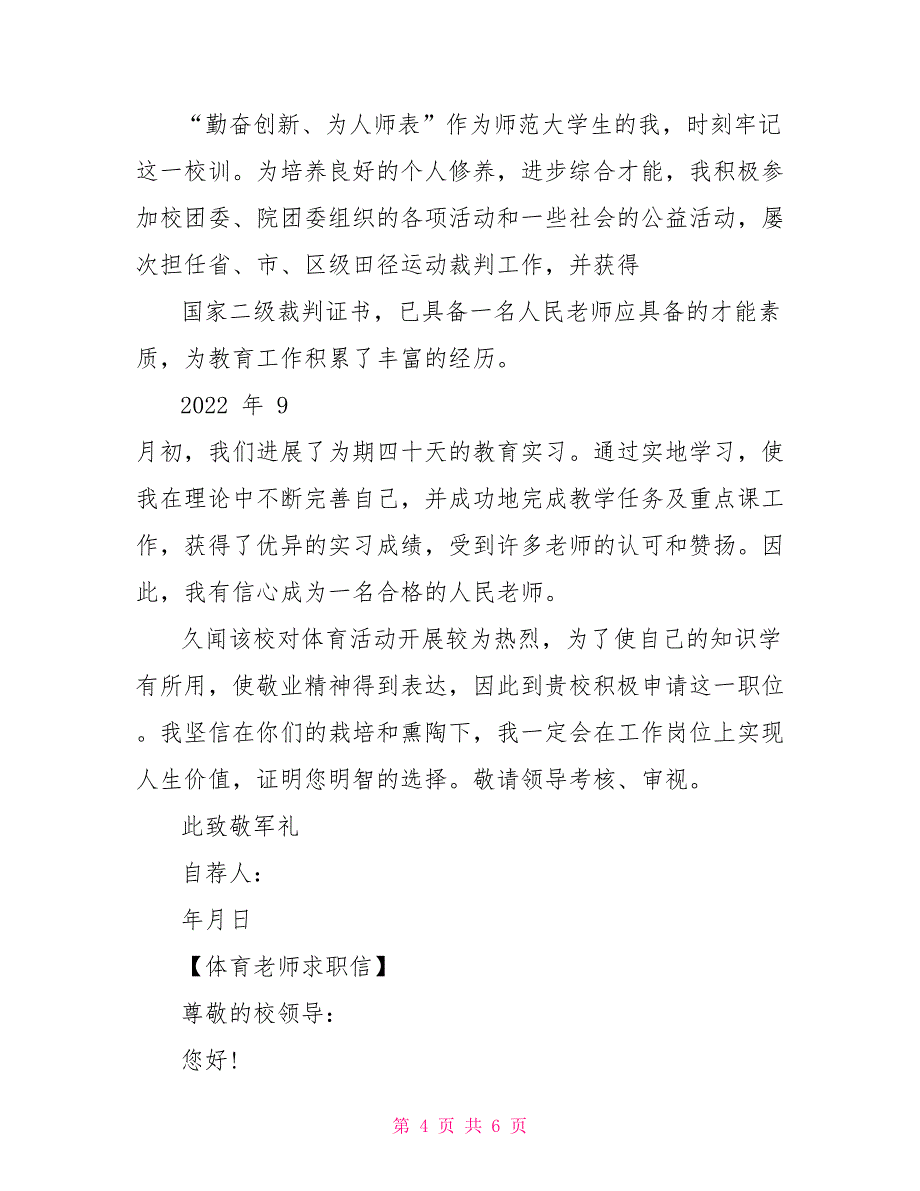 “勤奋创新、为人师表”作为师范大学生的我，时刻牢记
这一校训。为培养良好的个人修养，进步综合才能，我积极参
加校团委、院团委组织的各项活动和一些社会的公益活动，屡
次担任省、市、区级田径运动裁判工作，并获得
国家二级裁判证书，已具备一名人民老师应具备的才能素
质，为教育工作积累了丰富的经历。
2022 年 9
月初，我们进展了为期四十天的教育实习。通过实地学习，使
我在理论中不断完善自己，并成功地完成教学任务及重点课工
作，获得了优异的实习成绩，受到许多老师的认可和赞扬。因
此，我有信心成为一名合格的人民老师。
久闻该校对体育活动开展较为热烈，为了使自己的知识学
有所用，使敬业精神得到表达，因此到贵校积极申请这一职位
。我坚信在你们的栽培和熏陶下，我一定会在工作岗位上实现
人生价值，证明您明智的选择。敬请领导考核、审视。
此致敬军礼
自荐人：
年月日
【体育老师求职信】
尊敬的校领导：
您好!
第 4 页 共 6 页